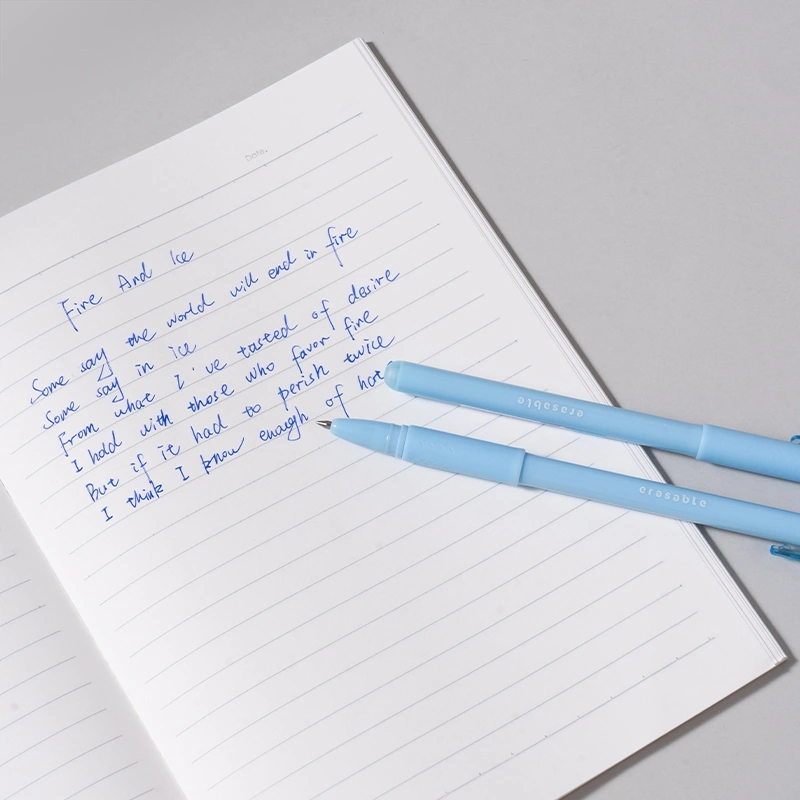 Date:
Fire And Ice
Some say the world will end in fire
Some say in ice
From what I've tasted of desire
I hold with those who favor fire
But if it had to perish twice
I think I know enough of hat
erasable
erasable